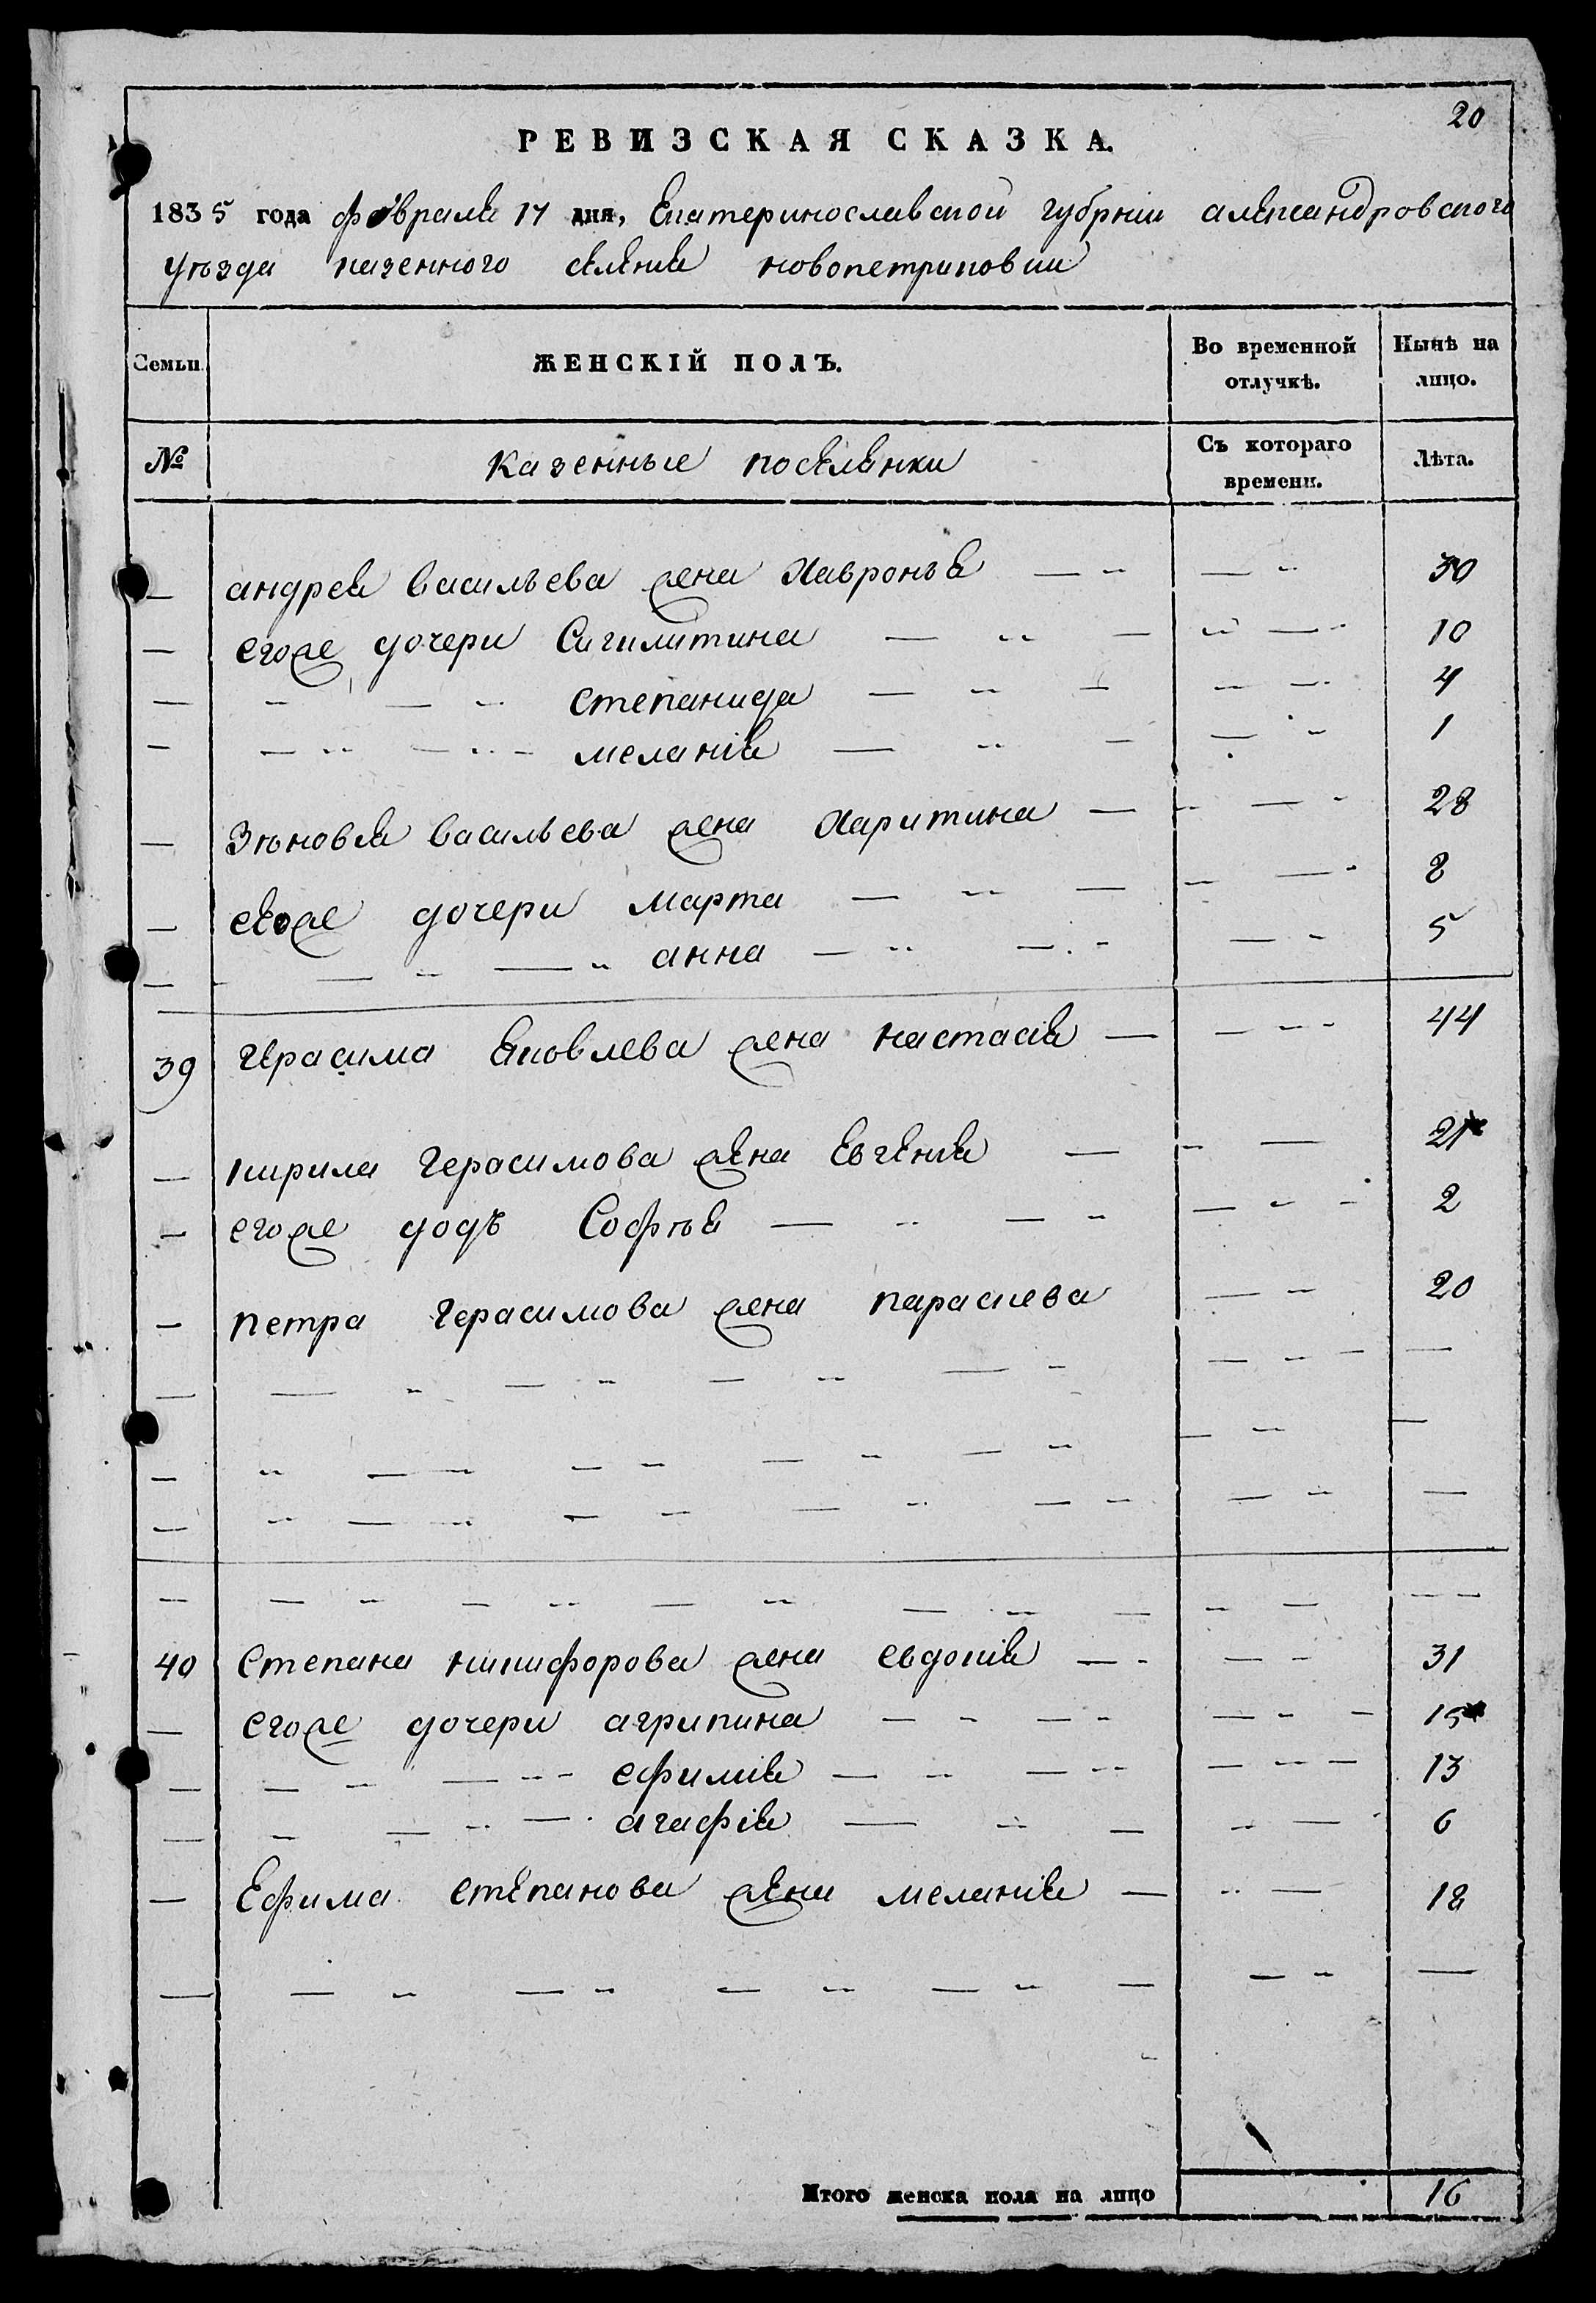 20
РЕВИЗСКАЯ СКАЗКА.
1835 года февраля 17 дня, Екатеринославской губрніи александровского
уѣзда казенного селенія новопетриковки
Семьи.
ЖЕНСКІЙ ПОЛЪ.
Во временной отлучкѣ.
Нынѣ на лицо.
№
Казенные поселянки
Съ котораго времени.
Лѣта.
— андрея васильева жена Хавронья — — 30
— егоже дочери Сигклитина — — 10
— — — степанида — — 4
— — — меланія — — 1
— Зѣновія васильева жена Харитина — — 28
— евоже дочери марта — — 8
— — — анна — — 5
39 Герасима Яковлева жена настасія — — 44
— кирила Герасимова жена Евгенія — — 21
— егоже дочь Софѣя — — 2
— петра Герасимова жена параскева — — 20
40 Степана никифорова жена евдокія — — 31
— егоже дочери агрипина — — 15
— — — ефимія — — 13
— — — агафія — — 6
— Ефима степанова жена меланія — — 18
Итого женска пола на лицо 16